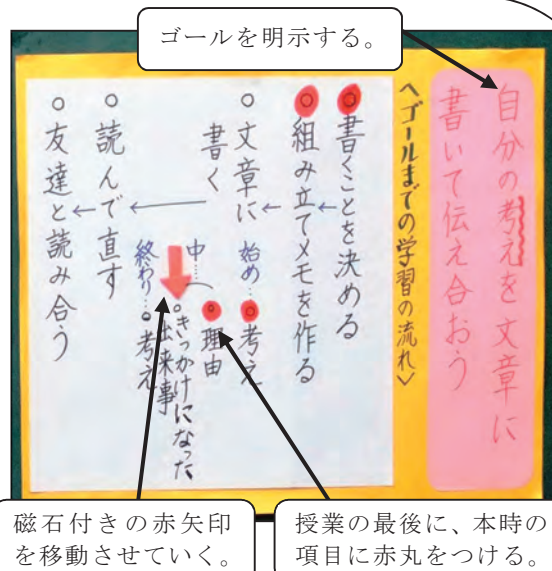 ゴールを明示する。
自分の考えを文章に
書いて伝え合おう
〈ゴールまでの学習の流れ〉
○書くことを決める
○組み立てメモを作る
○文章に
書く
始め…○考え
中…
○理由
○きっかけになった
出来事
終わり…○考え
○読んで直す
○友達と読み合う
磁石付きの赤矢印
を移動させていく。
授業の最後に、本時の
項目に赤丸をつける。